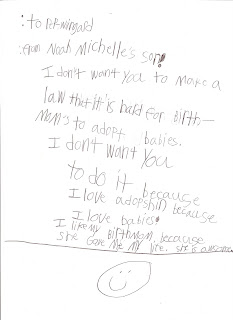 : to Rep. Wingard
: from Noah Michelle's son!
I don't want you to make a
law that it is hard for birth-
moms to adopt babies.
I dont want you
to do it because
I love adopshin because
I love babies.
I like my birthmom because
she gave me my life. she is awesome